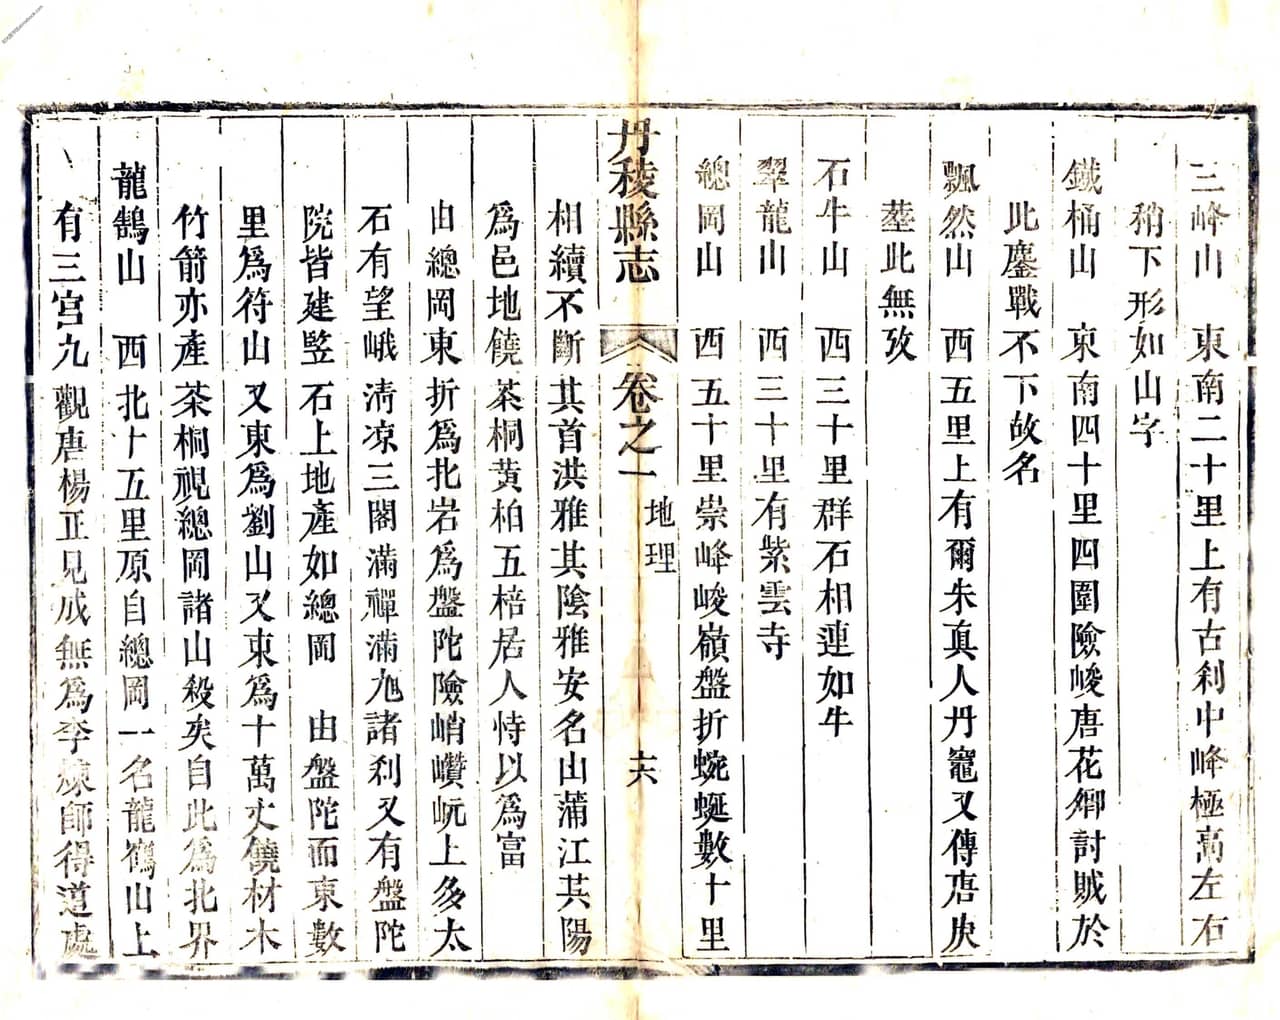 三峰山　東南二十里上有古刹中峰極高左右
稍下形如山字
鐵桶山　東南四十里四圍險峻唐花卿討賊於
此鏖戰不下故名
飄然山　西五里上有爾朱真人丹竈又傳唐庚
墓此無攷
石牛山　西三十里群石相連如牛
翠龍山　西三十里有紫雲寺
總岡山　西五十里崇峰峻嶺盤折蜿蜒數十里
丹稜縣志　卷之一　地理　十六
相續不斷其首洪雅其陰雅安名山蒲江其陽
為邑地饒茶桐黄柏五棓居人恃以為富
由總岡東折為北岩為盤陀險峭巑岏上多太
石有望峨清凉三閣滿禪滿旭諸刹又有盤陀
院皆建竪石上地產如總岡　由盤陀而東數
里為符山又東為劉山又東為十萬丈饒材木
竹箭亦產茶桐視總岡諸山殺矣自此為北界
龍鵠山　西北十五里原自總岡一名龍鶴山上
有三宫九觀唐楊正見成無為李煉師得道處